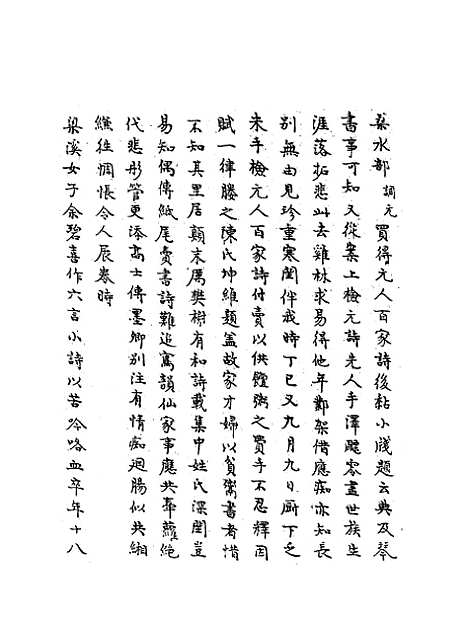 桑水部調元買得元人百家詩後黏小牋題云典及琴
書事可知又從案上檢元詩先人手澤飄零盡世族生
涯落拓悲此去雞林求易得他年鄴架借應癡亦知長
別無由見珍重寒閨伴我時丁巳又九月九日廚下乏
米手檢元人百家詩付賣以供饘粥之費手不忍釋因
賦一律媵之陳氏坤維題蓋故家才婦以貧鬻書者惜
不知其里居顛末厲樊榭有和詩載集中姓氏深閨豈
易知偶傳紙尾賣書詩難追寫韻仙家事應共牽蘿絕
代悲彤管更添高士傳墨卿別注有情痴迴腸似共緗
縑往惆悵令人展卷時
梁溪女子余碧喜作六言小詩以苦吟咯血卒年十八